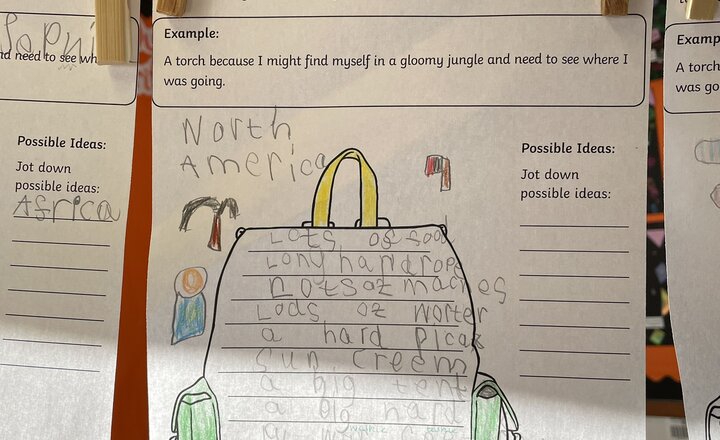 Sophi
nd need to see wh
Possible Ideas:
Jot down
possible ideas:
Africa
Example:
A torch because I might find myself in a gloomy jungle and need to see where I
was going.
North
America
Lots of foo
Long hardrope
Lots of maches
Lods of worter
a hard picax
Sun creem
a big tent
a big hard
Possible Ideas:
Jot down
possible ideas:
Examp
A torch
was go